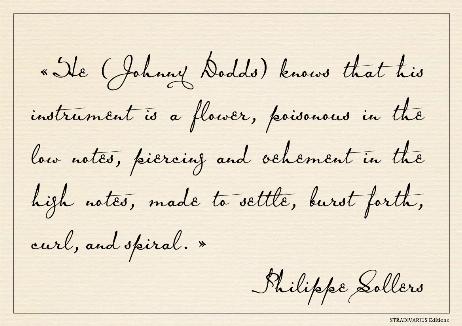 « He (Johnny Dodds) knows that his
instrument is a flower, poisonous in the
low notes, piercing and vehement in the
high notes, made to settle, burst forth,
curl, and spiral. »
Philippe Sollers
STRADIVARIUS Editions